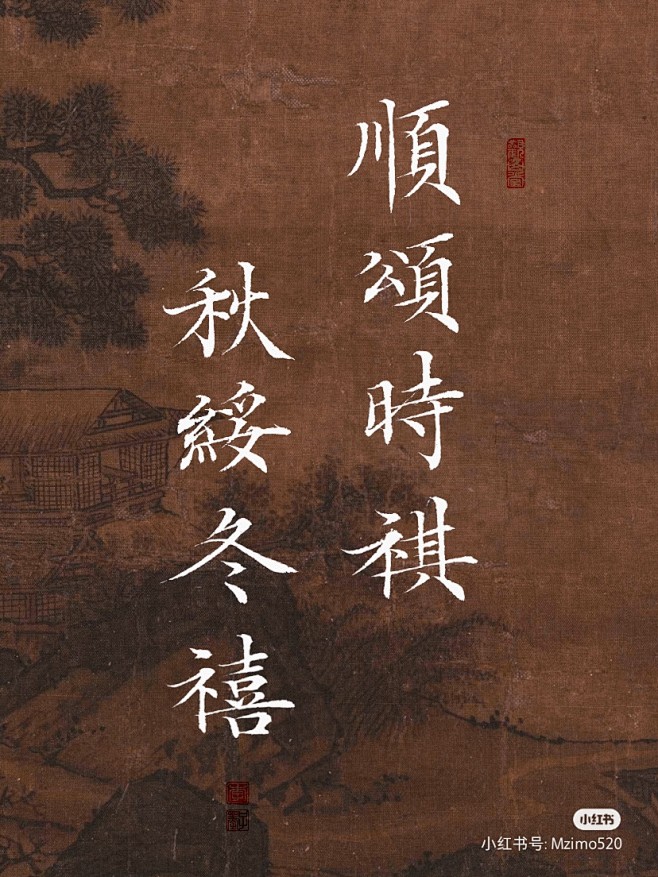 順頌時祺
秋綏冬禧
小红书
小红书号: Mzimo520